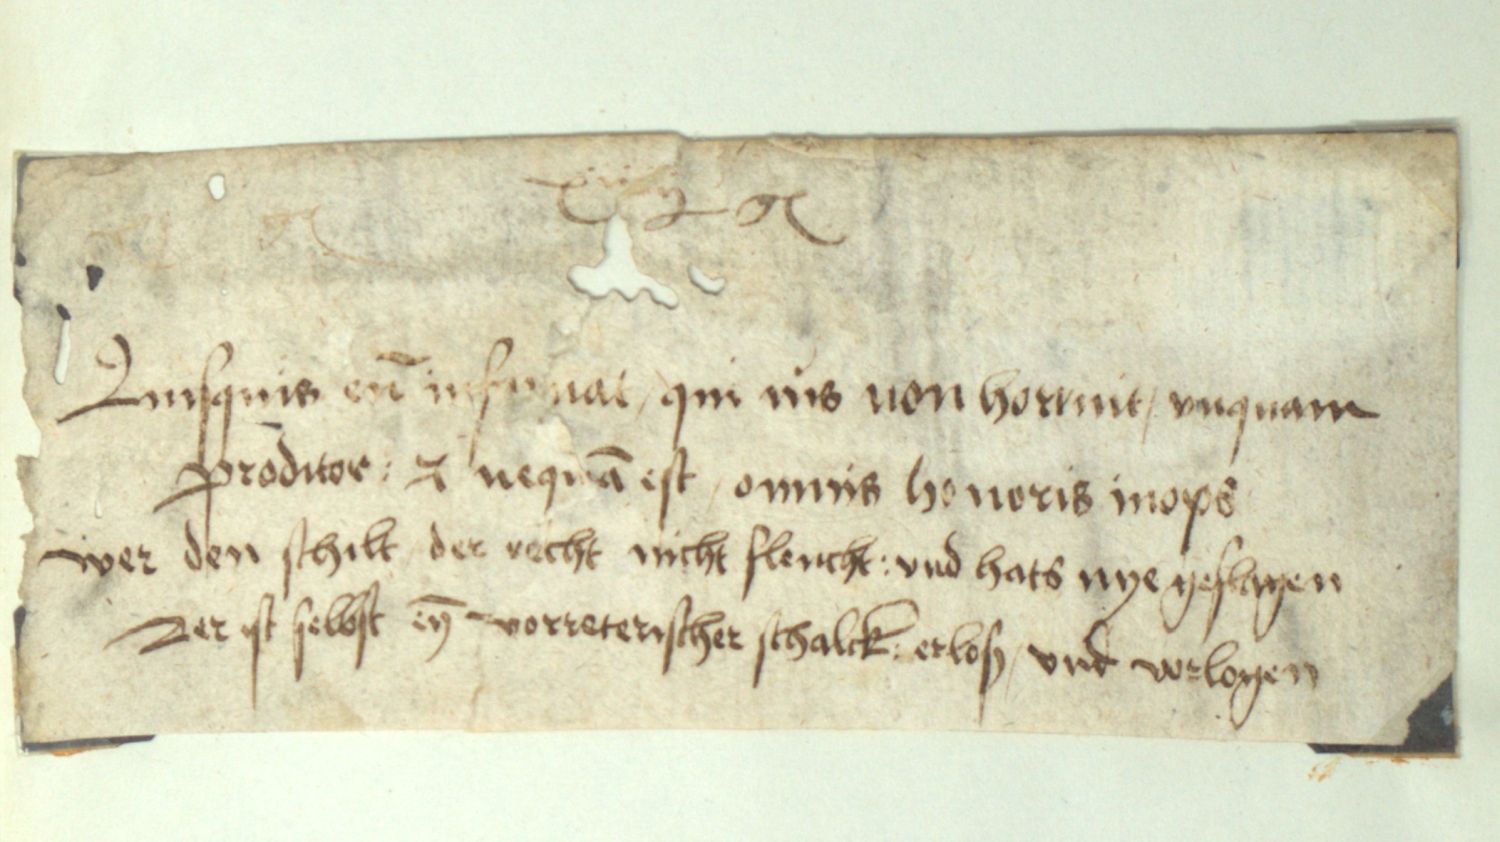 Quisquis eū infamat / qui ius non horruit / vnquam
proditor : ⁊ nequā est / omnis honoris inops
wer den schilt / der recht nicht fleucht : vnd hats nye geflogen
Der ist selbst eȳ vorreterischer schalck : erlosz / vnd vorlogen